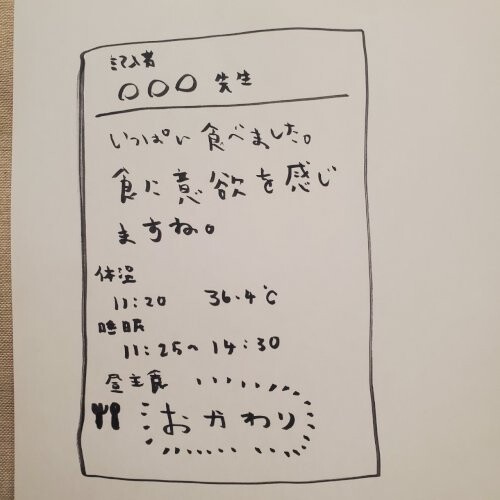 記入者
○○○ 先生
いっぱい食べました。
食に意欲を感じ
ますね。
体温
11:20 36.4℃
睡眠
11:25〜14:30
昼主食
おかわり